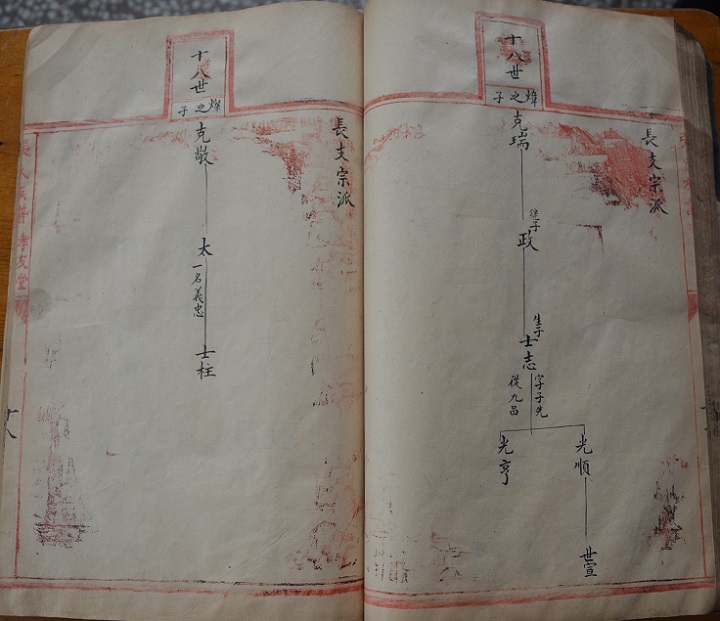 長支宗派
十八世
煒之子
克瑞
子
政
生子
士志
字子先
從九品
光順
世宣
光亨
長支宗派
十八世
之子
克敬
太
一名義忠
士柱
孝友堂